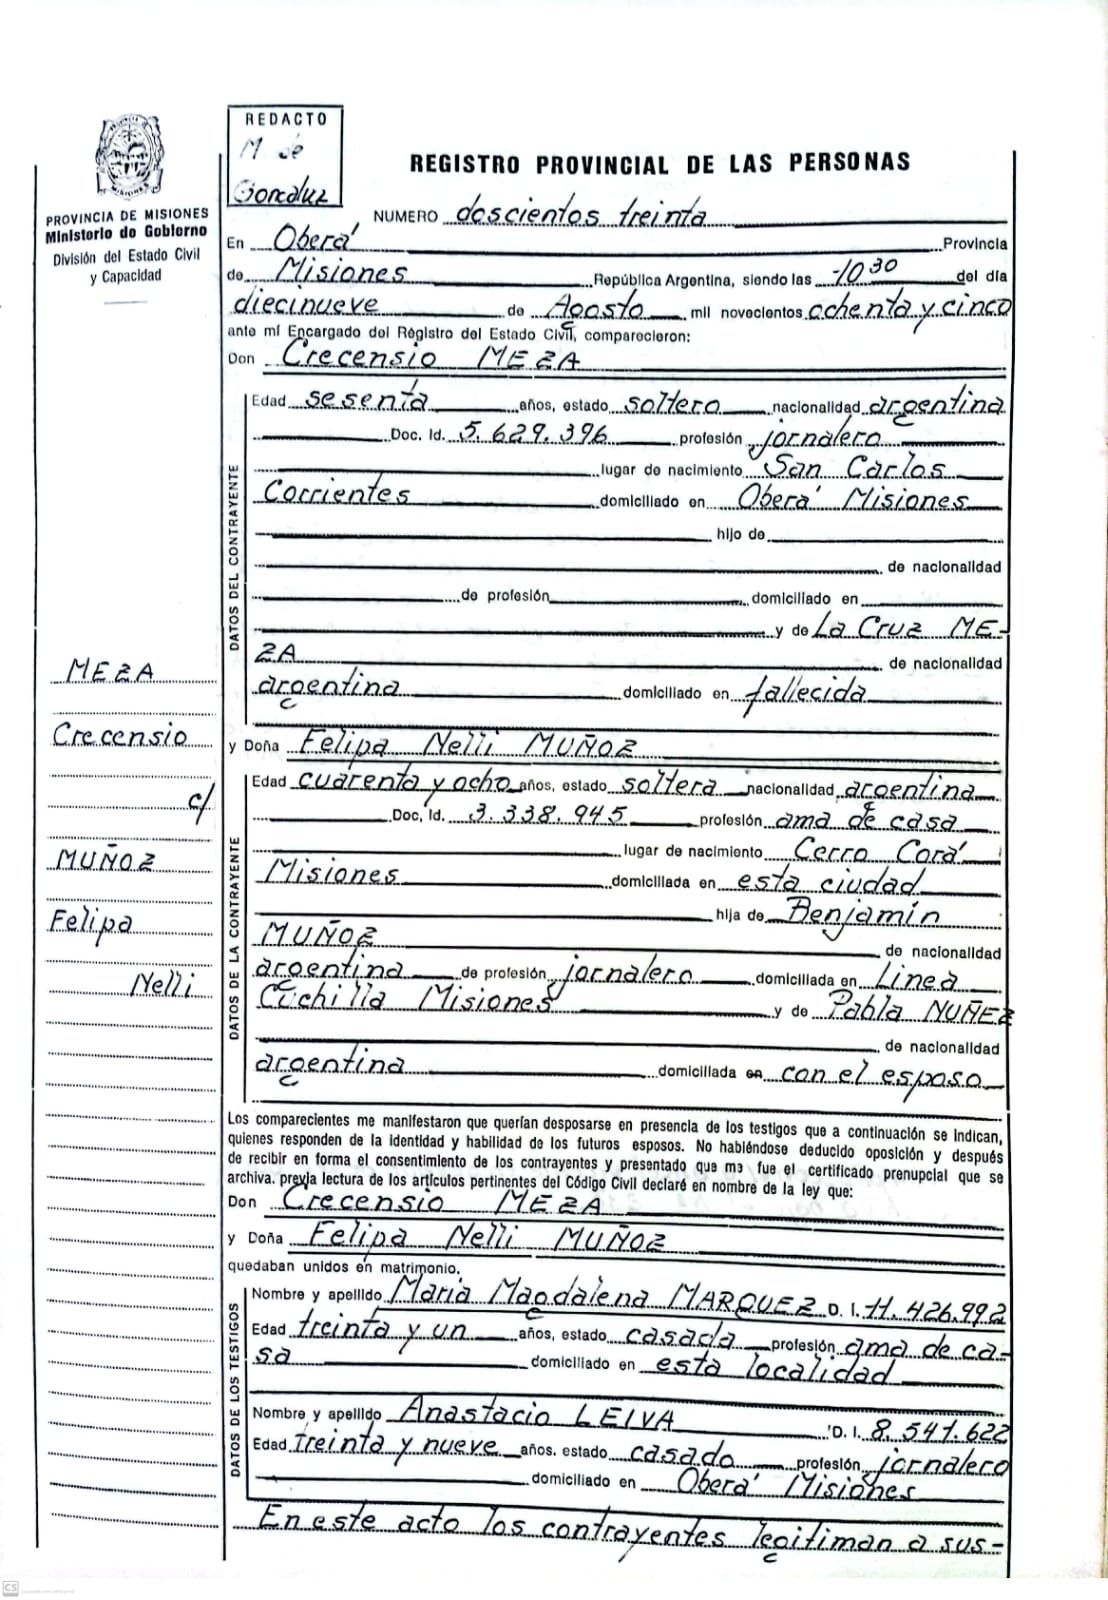 REDACTO
M de
Gonzalez
REGISTRO PROVINCIAL DE LAS PERSONAS
PROVINCIA DE MISIONES
Ministerio de Gobierno
División del Estado Civil
y Capacidad
NUMERO doscientos treinta
En Oberá Provincia
de Misiones República Argentina, siendo las 10 30 del día
diecinueve de Agosto mil novecientos ochenta y cinco
ante mí Encargado del Registro del Estado Civil, comparecieron:
Don Crecensio MEZA
DATOS DEL CONTRAYENTE
Edad sesenta años, estado soltero nacionalidad argentina
Doc. Id. 5.629.396 profesión jornalero
lugar de nacimiento San Carlos
Corrientes domiciliado en Oberá Misiones
hijo de
de nacionalidad
de profesión domiciliado en
y de La Cruz ME-
ZA de nacionalidad
argentina domiciliado en fallecida
MEZA
Crecensio
c/
MUÑOZ
Felipa
Nelli
y Doña Felipa Nelli MUÑOZ
DATOS DE LA CONTRAYENTE
Edad cuarenta y ocho años, estado soltera nacionalidad argentina
Doc. Id. 3.338.945 profesión ama de casa
lugar de nacimiento Cerro Corá
Misiones domiciliada en esta ciudad
hija de Benjamín
MUÑOZ de nacionalidad
argentina de profesión jornalero domiciliada en Linea
Cuchilla Misiones y de Pabla NUÑEZ
de nacionalidad
argentina domiciliada en con el esposo
Los comparecientes me manifestaron que querían desposarse en presencia de los testigos que a continuación se indican,
quienes responden de la identidad y habilidad de los futuros esposos. No habiéndose deducido oposición y después
de recibir en forma el consentimiento de los contrayentes y presentado que me fue el certificado prenupcial que se
archiva. previa lectura de los artículos pertinentes del Código Civil declaré en nombre de la ley que:
Don Crecensio MEZA
y Doña Felipa Nelli MUÑOZ
quedaban unidos en matrimonio.
DATOS DE LOS TESTIGOS
Nombre y apellido Maria Magdalena MARQUEZ D. I. 11.426.992
Edad treinta y un años, estado casada profesión ama de ca-
sa domiciliado en esta localidad
Nombre y apellido Anastacio LEIVA D. I. 8.541.622
Edad treinta y nueve años. estado casado profesión jornalero
domiciliado en Oberá Misiones
En este acto los contrayentes legitiman a sus-
CS